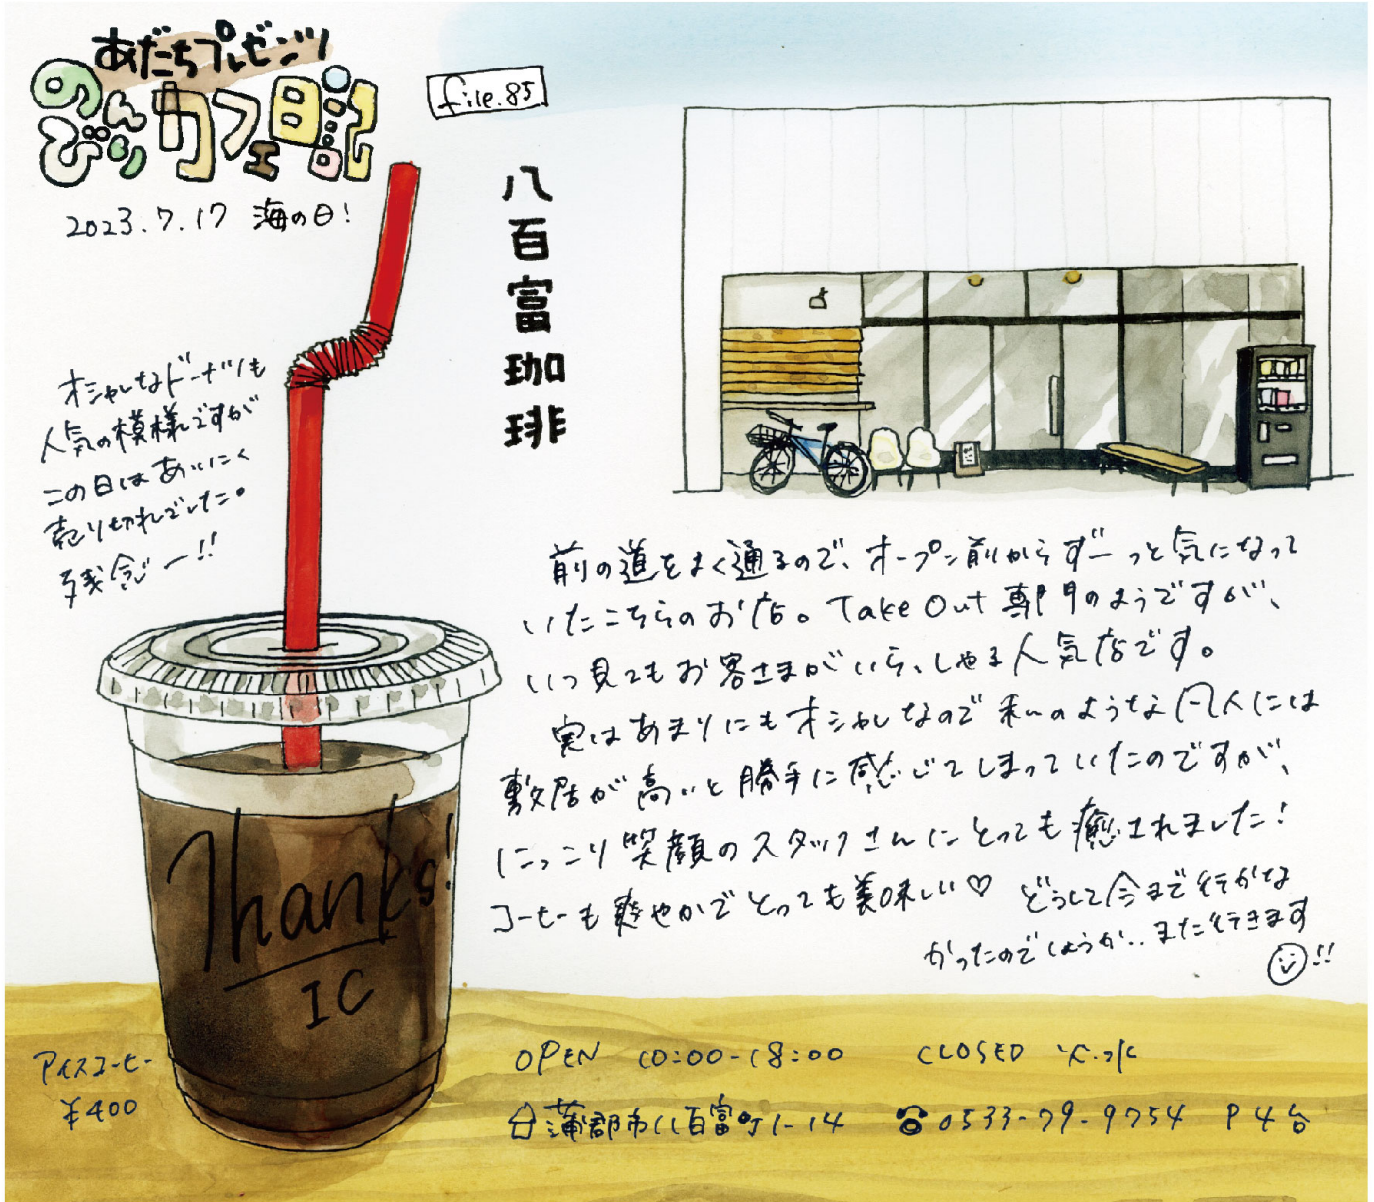 あだちプレゼンツ
のんびりカフェ日記
file.85
2023.7.17 海の日!
八百富珈琲
オシャレなドーナツも
人気の模様ですが
この日はあいにく
売り切れでした。
残念ー!!
前の道をよく通るので、オープン前からずーっと気になって
いたこちらのお店。Take Out 専門のようですが、
いつ見てもお客さまがいらっしゃる人気店です。
実はあまりにもオシャレなので私のような凡人には
敷居が高いと勝手に感じてしまっていたのですが、
にっこり笑顔のスタッフさんにとっても癒されました!
コーヒーも爽やかでとっても美味しい♡ どうして今まで行かな
かったのでしょうか.. また行きます
!!
Thanks!
IC
アイスコーヒー
¥400
OPEN 10:00-18:00 CLOSED 火.水
蒲郡市八百富町1-14 ☎0533-79-9754 P4台